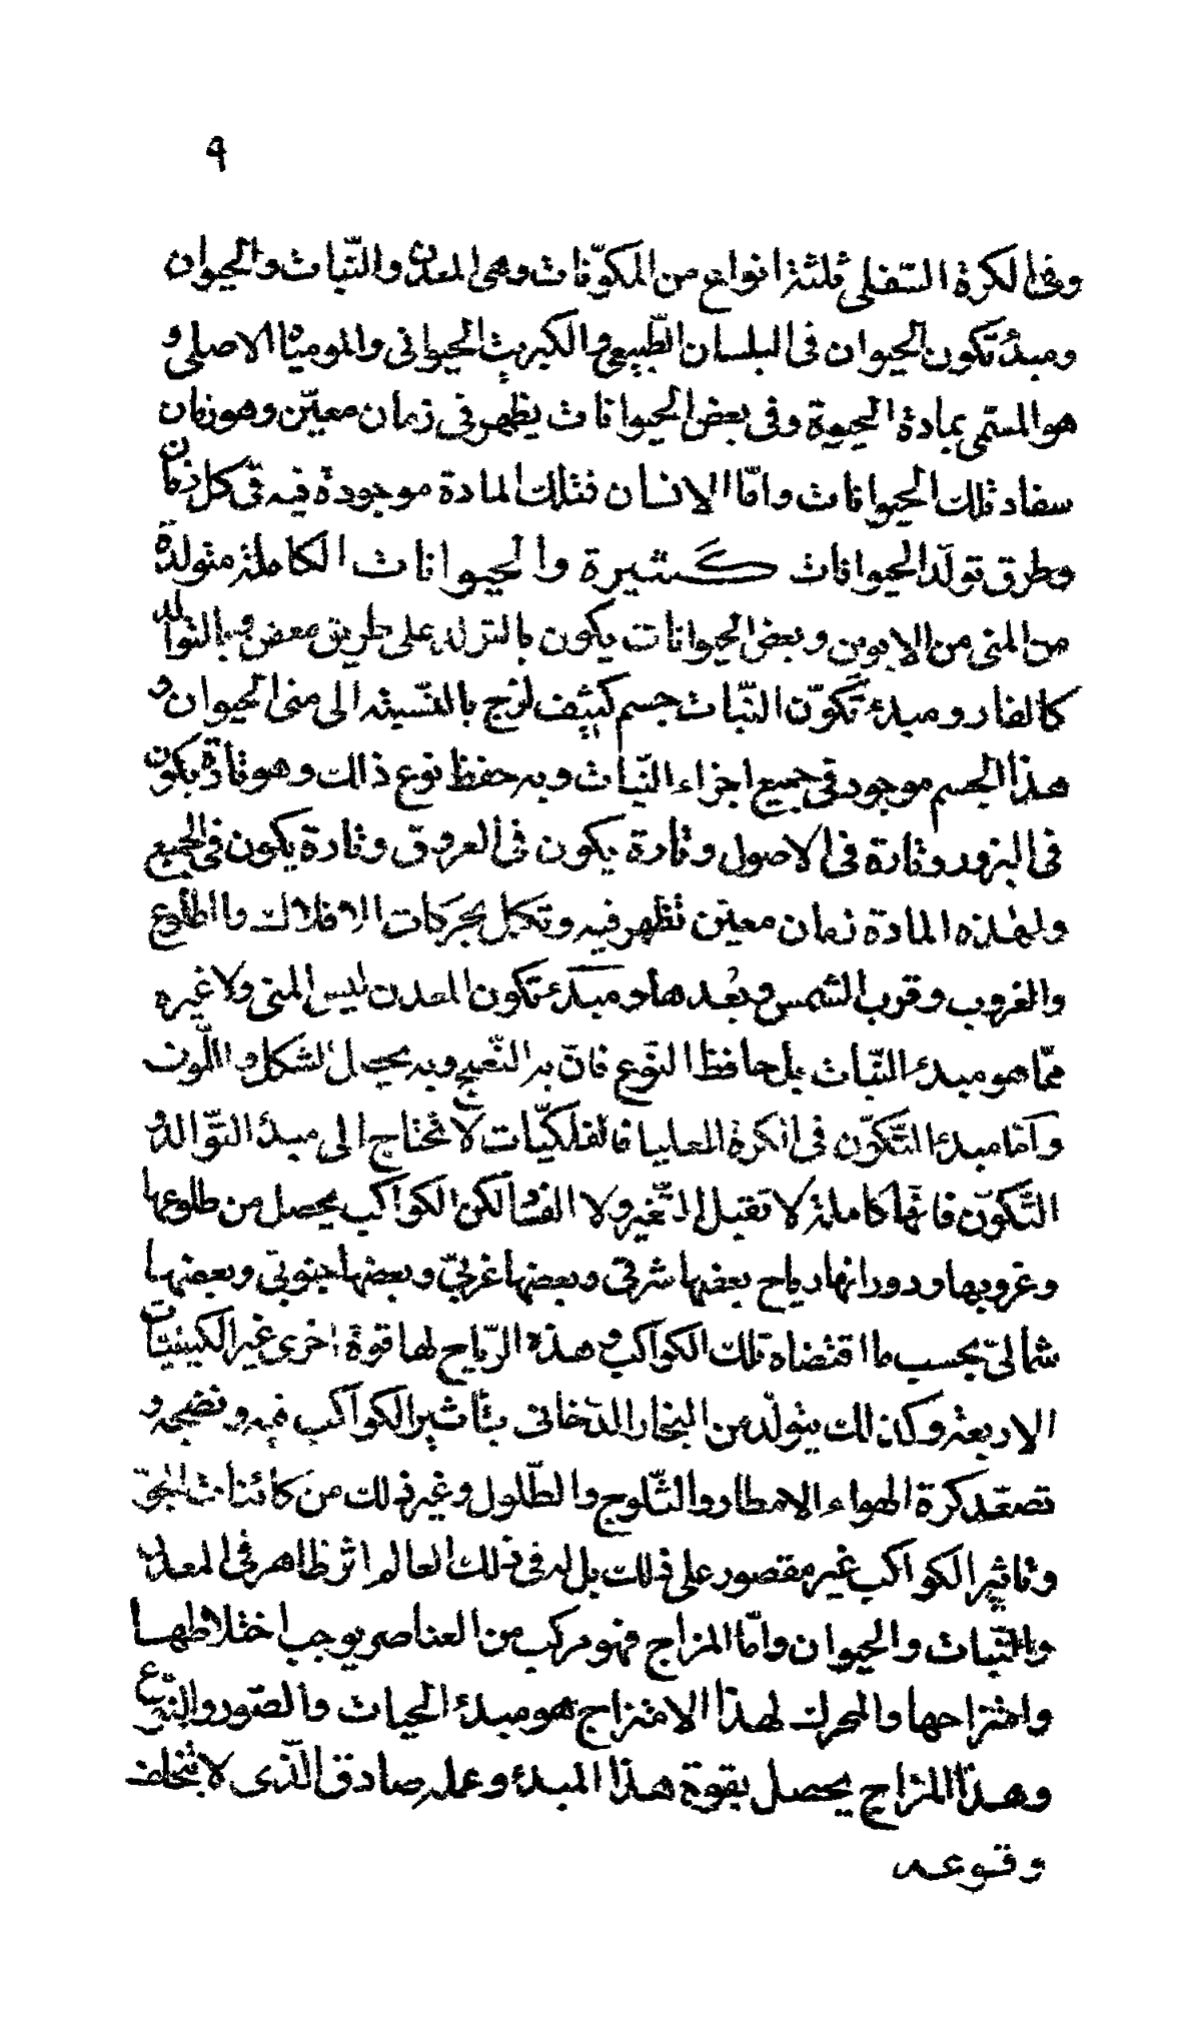 ٩
وفى الكرة السفلى ثلثة انواع من المكوّنات وهى المعدن والنّبات والحيوان
ومبدء تكون الحيوان فى البلسان الطّبيعى والكبريت الحيوانى والموميا الاصلى و
هو المسمّى بمادة الحيوة وفى بعض الحيوانات يظهر فى زمان معيّن وهو زمان
سفاد تلك الحيوانات وامّا الانسان فتلك المادة موجودة فيه فى كل زمان
وطرق تولّد الحيوانات كثيرة والحيوانات الكاملة متولدة
من المنى من الابوين وبعض الحيوانات يكون بالتولد على طريق معض وبالتوالد
كالفار ومبدء تكوّن النّبات جسم كثيف لزج بالنّسبة الى منى الحيوان و
هذا الجسم موجود فى جميع اجزاء النّبات وبه حفظ نوع ذالك وهو تارة يكون
فى البزور وتارة فى الاصول وتارة يكون فى العروق وتارة يكون فى الجميع
ولهذه المادة زمان معيّن تظهر فيه وتكمل بحركات الافلاك واالطلوع
والغروب وقرب الشمس وبُعدها ومبدء تكون المعدن ليس المنى ولا غيره
ممّا هو مبدء النّبات بل حافظ النّوع فانّ به النّضج وبه يحصل الشكل واللّون
وامّا مبدء التّكوّن فى الكرة العليا فالفلكيّات لا تحتاج الى مبدء التّوالد و
التّكوّن فانّها كاملة لا تقبل التّغير ولا الفساد لكن الكواكب يحصل من طلوعها
وغروبها ودورانها رياح بعضها شرقى وبعضها غربىّ وبعضها جنوبى وبعضها
شمالىّ بحسب ما اقتضاه تلك الكواكب وهذه الرّياح لها قوة اخرى غير الكيفيّات
الاربعة وكذلك يتولّد من البخار الدّخانى بتأثير الكواكب فيه ونضجه و
تصعّد كرة الهواء الامطار والثّلوج والطّلول وغير ذلك من كائنات الجوّ
وتاثير الكواكب غير مقصور على ذلك بل له فى ذلك العالم اثر ظاهر فى المعدن
والنّبات والحيوان وامّا المزاج فهو مركب من العناصر يوجب اختلاطها
وامتزاجها والمحرك لهذا الامتزاج هو مبدء الحيات والصّور والنّوع
وهذا المزاج يحصل بقوة هذا المبدء وعمله صادق الّذى لا يتخلف
وقوعه